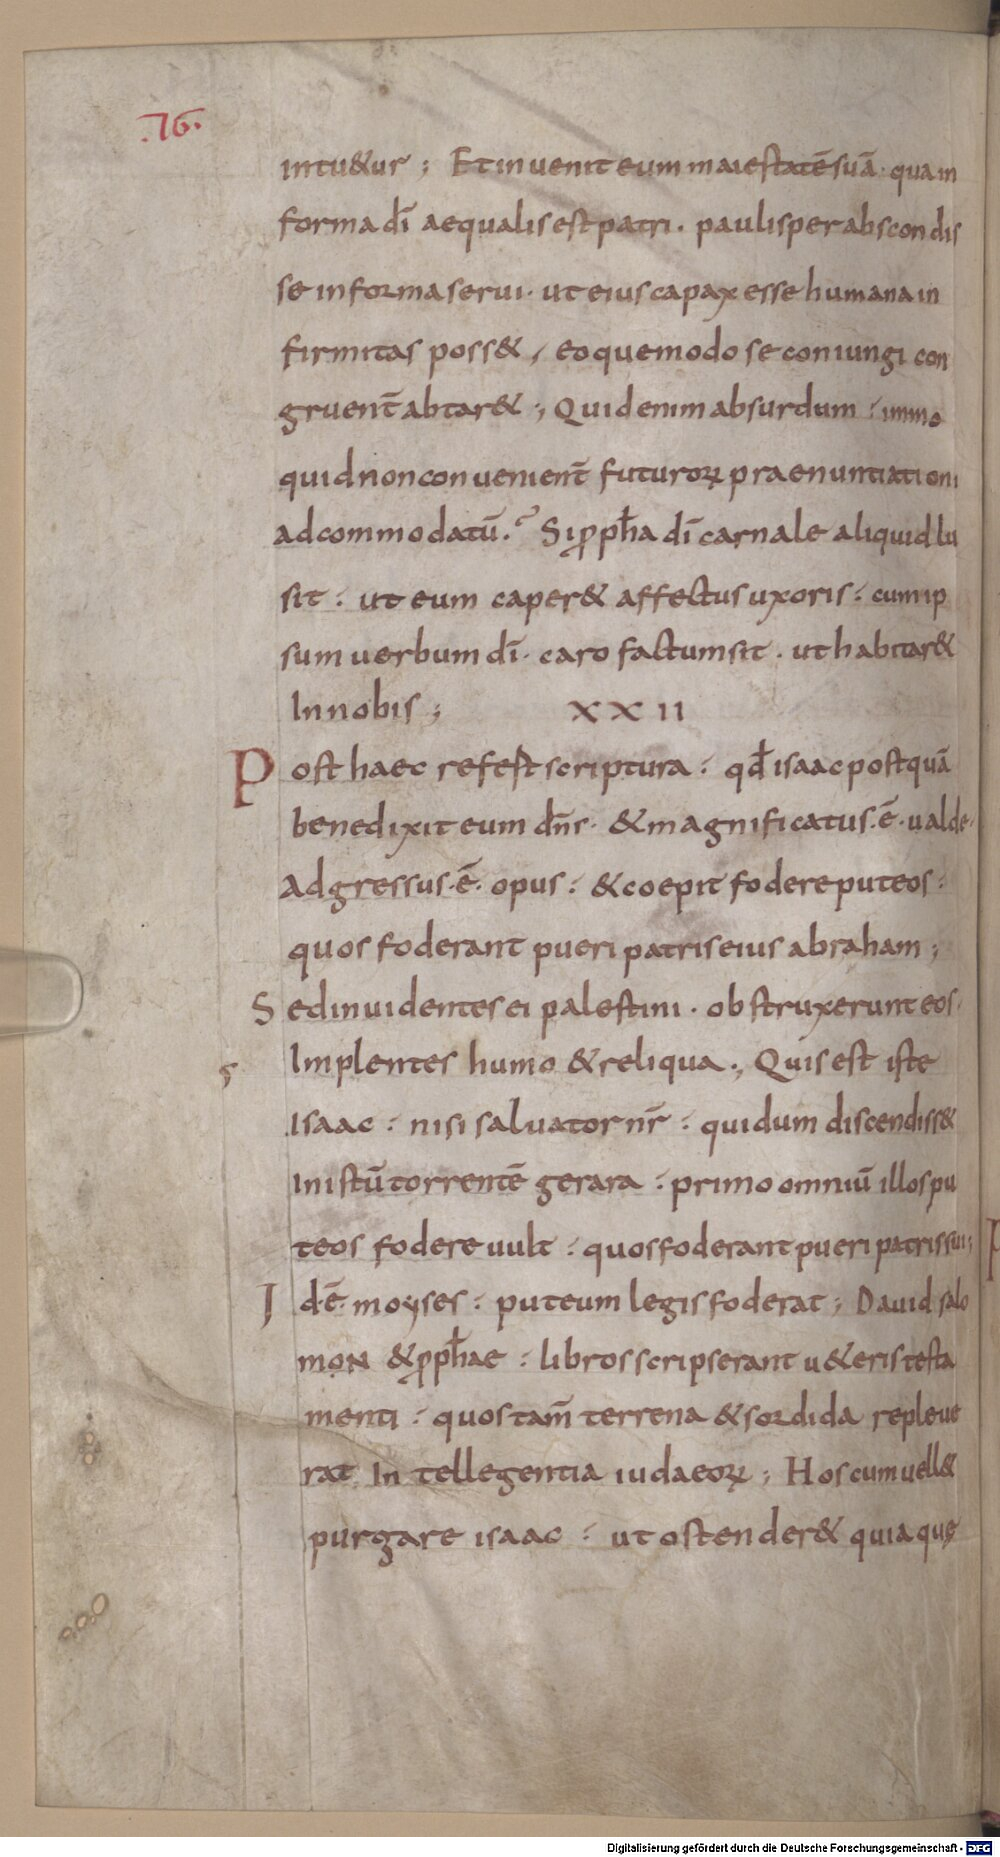 .76.
intu&ur ; Et inuenit eum maiestatē suā · qua in
forma dī aequalis est patri . paulisper abscondis
se in forma serui · ut eius capax esse humana in
firmitas poss& , eoquemodo se coniungi con
gruent̄ abtar& ; Quid enim absurdum : immo
quid non conuenient̄ futuroꝝ praenuntiationi
adcommodatū .? Si ꝓph̄a dī carnale aliquid lu
sit : ut eum caper& affectus uxoris : cum ip
sum uerbum dī · caro factum sit . ut habitar&
In nobis ; XXII
Post haec refest scriptura : qđ isaac postquā
benedixit eum dn̄s · & magnificatus · ē · ualde ·
Adgressus · ē · opus : & coepit fodere puteos :
quos foderant pueri patris eius abraham ;
Sed inuidentes ei palestini . obstruxerunt eos ·
Implentes humo & reliqua ., Quis est iste
s
Isaac : nisi saluator nr̄ : qui dum discendiss&
In istū torrentē gerara : primo omniū illos pu
teos fodere uult : quos foderant pueri patris sui ;
Id · ē · moyses : puteum legis foderat ; Dauid salo
mon & ꝓph̄ae : libros scripserant u&eris testa
menti : quos tam̄ terrena & sordida repleue
rat In tellegentia iudaeoꝝ ; Hos cum uell&
purgare isaac : ut ostender& quia quę
Digitalisierung gefördert durch die Deutsche Forschungsgemeinschaft - DFG